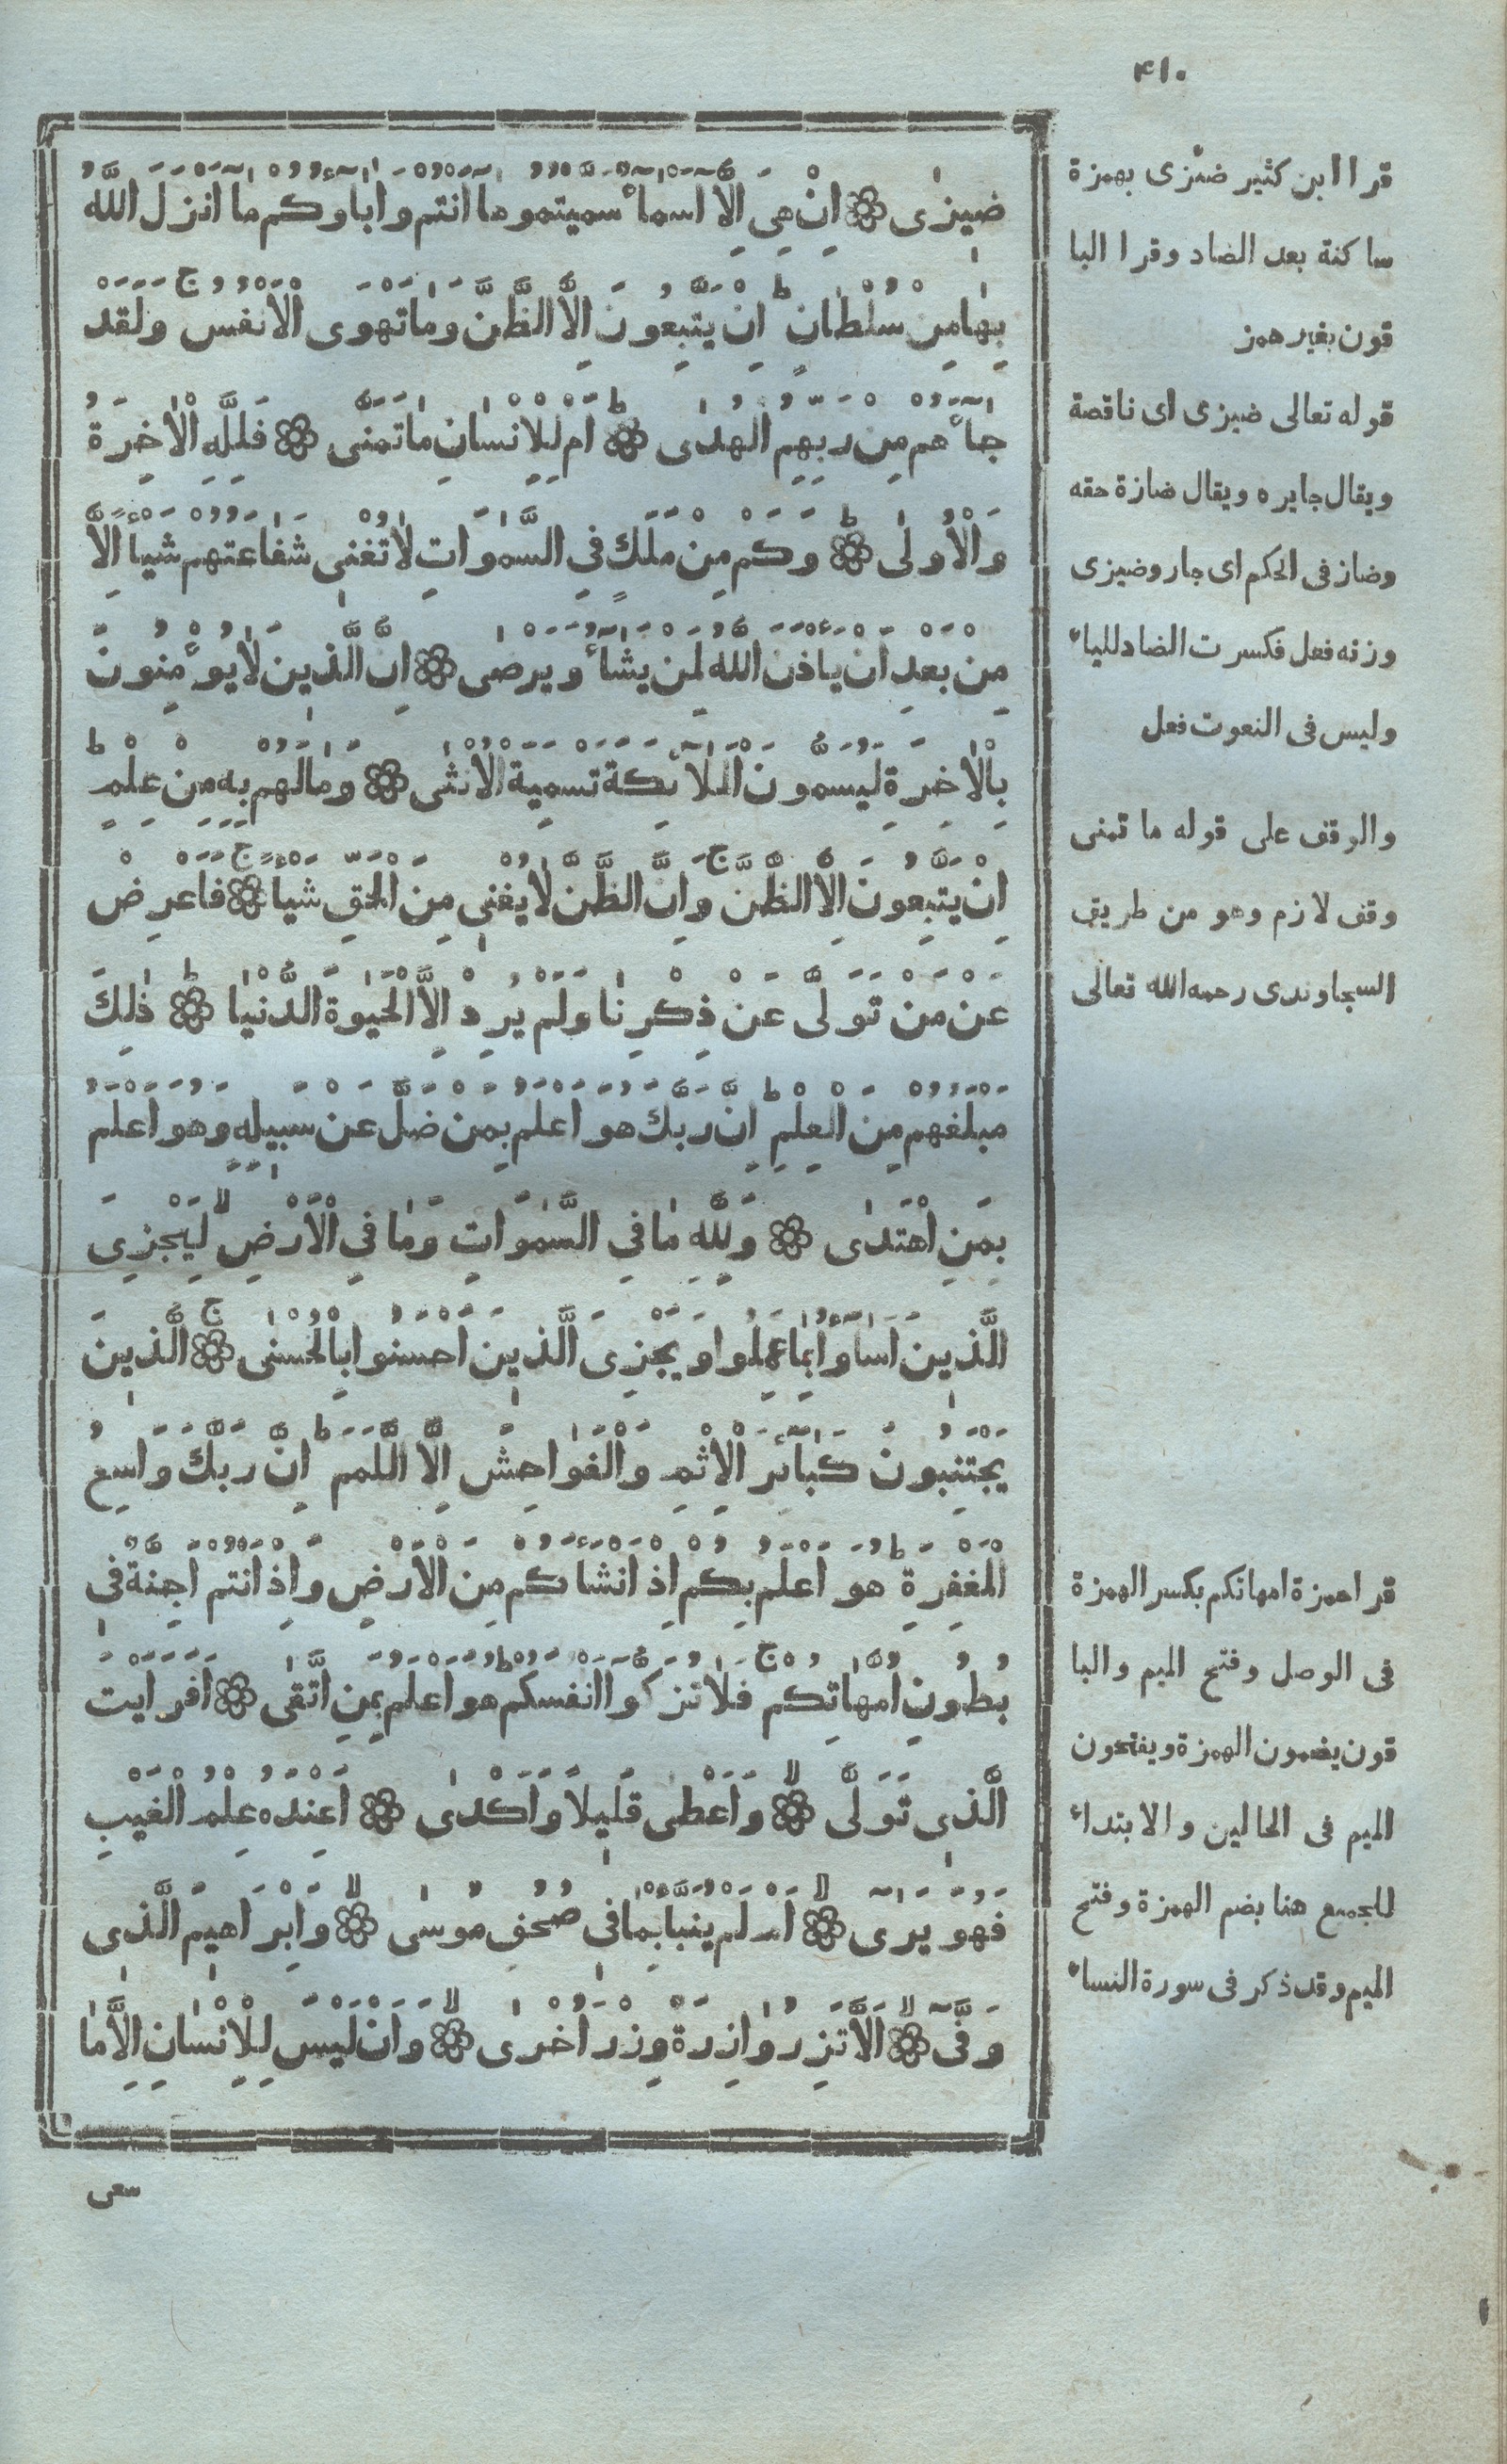 ٤١٠
ضِيزٰى ۞ اِنْ هِىَ اِلَّا اَسْمَآءٌ سَمَّيْتُمُوهَا اَنْتُمْ وَاٰبَآوُكُمْ مَا اَنْزَلَ اللّٰهُ
بِهٰا مِنْ سُلْطٰانٍ ط اِنْ يَتَّبِعُونَ اِلَّا الظَّنَّ وَمٰا تَهْوَى الْاَنْفُسُ ج وَلَقَدْ
جٰآءَهُمْ مِنْ رَبِّهِمُ الْهُدٰى ط ۞ اَمْ لِلْاِنْسٰانِ مٰا تَمَنّٰى ۞ فَلِلّٰهِ الْاٰخِرَةُ
وَالْاُولٰى ط ۞ وَكَمْ مِنْ مَلَكٍ فِى السَّمٰوَاتِ لٰا تُغْنِى شَفٰاعَتُهُمْ شَيْأً اِلَّا
مِنْ بَعْدِ اَنْ يَاْذَنَ اللّٰهُ لِمَنْ يَشٰآءُ وَيَرْضٰى ۞ اِنَّ الَّذِينَ لٰا يُؤْمِنُونَ
بِالْاٰخِرَةِ لَيُسَمُّونَ الْمَلٰآئِكَةَ تَسْمِيَةَ الْاُنْثٰى ۞ وَمٰا لَهُمْ بِهِ مِنْ عِلْمٍ ط
اِنْ يَتَّبِعُونَ اِلَّا الظَّنَّ ج وَاِنَّ الظَّنَّ لٰا يُغْنِى مِنَ الْحَقِّ شَيْأً ج ۞ فَاَعْرِضْ
عَنْ مَنْ تَوَلّٰى عَنْ ذِكْرِنٰا وَلَمْ يُرِدْ اِلَّا الْحَيٰوةَ الدُّنْيٰا ط ۞ ذٰلِكَ
مَبْلَغُهُمْ مِنَ الْعِلْمِ ط اِنَّ رَبَّكَ هُوَ اَعْلَمُ بِمَنْ ضَلَّ عَنْ سَبِيلِهِ وَهُوَ اَعْلَمُ
بِمَنِ اهْتَدٰى ۞ وَلِلّٰهِ مٰا فِى السَّمٰوَاتِ وَمٰا فِى الْاَرْضِ لا لِيَجْزِىَ
الَّذِينَ اَسٰآوُا بِمٰا عَمِلُوا وَيَجْزِىَ الَّذِينَ اَحْسَنُوا بِالْحُسْنٰى ج ۞ الَّذِينَ
يَجْتَنِبُونَ كَبٰآئِرَ الْاِثْمِ وَالْفَوٰاحِشَ اِلَّا اللَّمَمَ ط اِنَّ رَبَّكَ وَاسِعُ
الْمَغْفِرَةِ ط هُوَ اَعْلَمُ بِكُمْ اِذْ اَنْشَاَكُمْ مِنَ الْاَرْضِ وَاِذْ اَنْتُمْ اَجِنَّةٌ فِى
بُطُونِ اُمَّهٰاتِكُمْ ج فَلٰا تُزَكُّوا اَنْفُسَكُمْ ط هُوَ اَعْلَمُ بِمَنِ اتَّقٰى ۞ اَفَرَاَيْتَ
الَّذِى تَوَلّٰى لا ۞ وَاَعْطٰى قَلِيلاً وَاَكْدٰى ۞ اَعِنْدَهُ عِلْمُ الْغَيْبِ
فَهُوَ يَرٰى لا ۞ اَمْ لَمْ يُنَبَّاْ بِمٰا فِى صُحُفِ مُوسٰى لا ۞ وَاِبْرَاهِيمَ الَّذِى
وَفّٰى لا ۞ اَلَّا تَزِرُ وٰازِرَةٌ وِزْرَ اُخْرٰى لا ۞ وَاَنْ لَيْسَ لِلْاِنْسٰانِ اِلَّا مٰا
سعى
قرا ابن كثير ضئزى بهمزة
ساكنة بعد الضاد وقرا البا
قون بغير همز
قوله تعالى ضيزى اى ناقصة
ويقال جايره ويقال ضازة حقه
وضاز فى الحكم اى جار وضيزى
وزنه فعل فكسرت الضاد للياء
وليس فى النعوت فعل
والوقف على قوله ما تمنى
وقف لازم وهو من طريق
السجاوندى رحمه الله تعالى
قرا حمزة امهاتكم بكسر الهمزة
فى الوصل وفتح الميم والبا
قون يضمون الهمزة ويفتحون
الميم فى الحالين والابتداء
للجميع هنا بضم الهمزة وفتح
الميم وقد ذكر فى سورة النساء